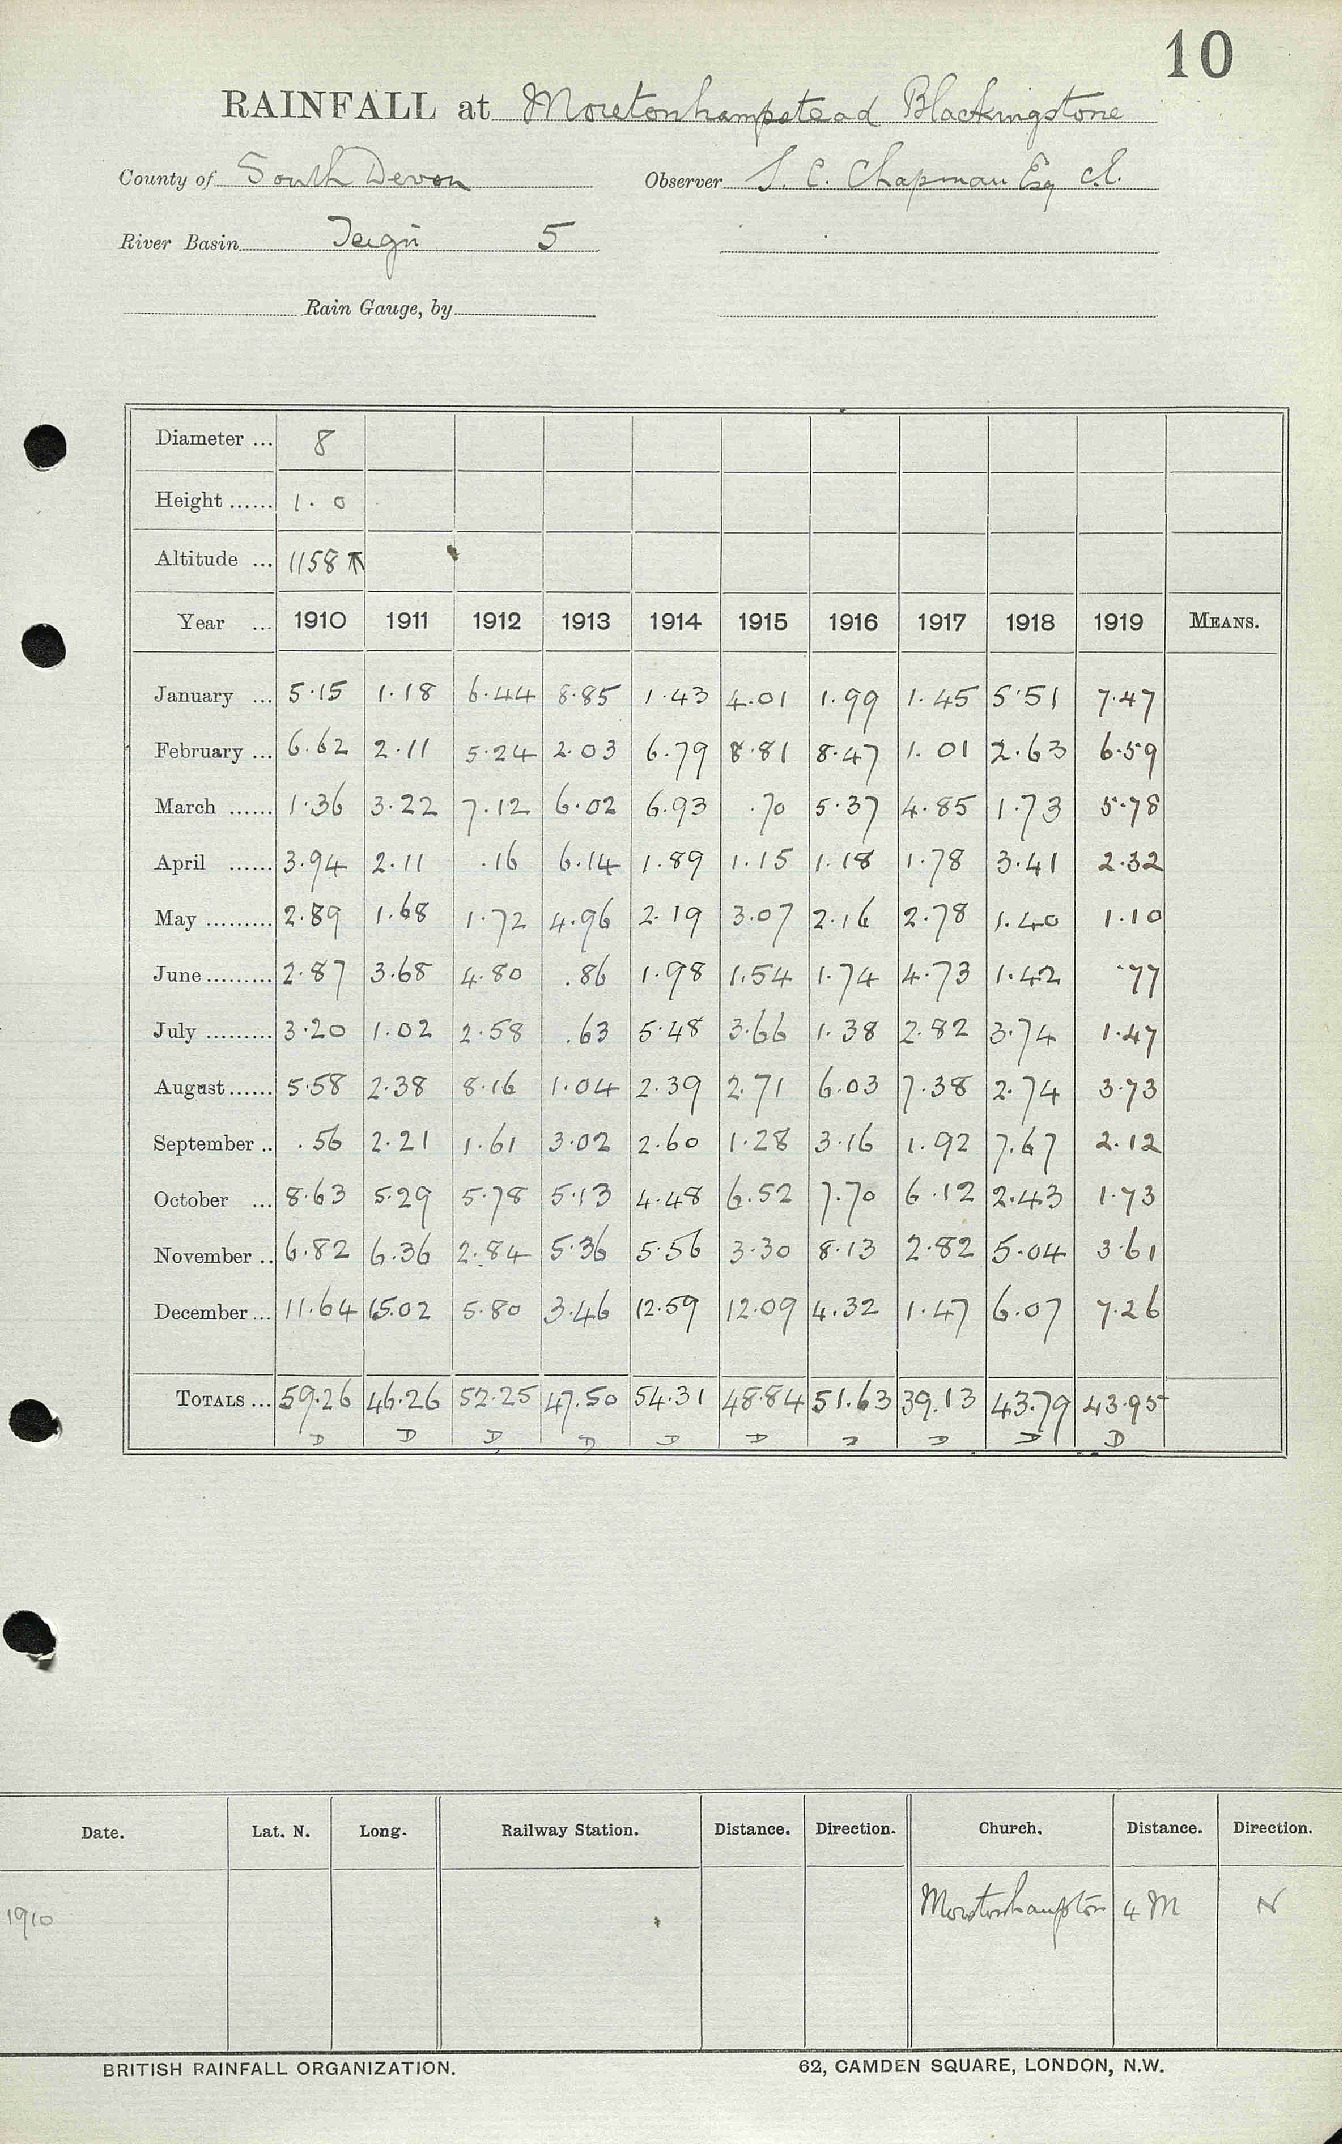 10
RAINFALL at Moretonhampstead Blackingstone
County of South Devon Observer S. C. Chapman Esq C.E.
River Basin Teign 5
Rain Gauge, by
Diameter ... 8
Height ...... 1. 0
Altitude ... 1158
Year ... 1910 1911 1912 1913 1914 1915 1916 1917 1918 1919 MEANS.
January ... 5.15 1.18 6.44 8.85 1.43 4.01 1.99 1.45 5.51 7.47
February ... 6.62 2.11 5.24 2.03 6.79 8.81 8.47 1.01 2.63 6.59
March ...... 1.36 3.22 7.12 6.02 6.93 .70 5.37 4.85 1.73 5.78
April ...... 3.94 2.11 .16 6.14 1.89 1.15 1.18 1.78 3.41 2.32
May ......... 2.89 1.68 1.72 4.96 2.19 3.07 2.16 2.78 1.40 1.10
June ......... 2.87 3.68 4.80 .86 1.98 1.54 1.74 4.73 1.42 .77
July ......... 3.20 1.02 2.58 .63 5.48 3.66 1.38 2.82 3.74 1.47
August ...... 5.58 2.38 8.16 1.04 2.39 2.71 6.03 7.38 2.74 3.73
September .. .56 2.21 1.61 3.02 2.60 1.28 3.16 1.92 7.67 2.12
October ... 8.63 5.29 5.78 5.13 4.48 6.52 7.70 6.12 2.43 1.73
November .. 6.82 6.36 2.84 5.36 5.56 3.30 8.13 2.82 5.04 3.61
December ... 11.64 15.02 5.80 3.46 12.59 12.09 4.32 1.47 6.07 7.26
TOTALS ... 59.26 46.26 52.25 47.50 54.31 48.84 51.63 39.13 43.79 43.95
D D D D D D D D D D
Date. Lat. N. Long. Railway Station. Distance. Direction. Church. Distance. Direction.
1910 Moretonhampton 4 M N
BRITISH RAINFALL ORGANIZATION. 62, CAMDEN SQUARE, LONDON, N.W.